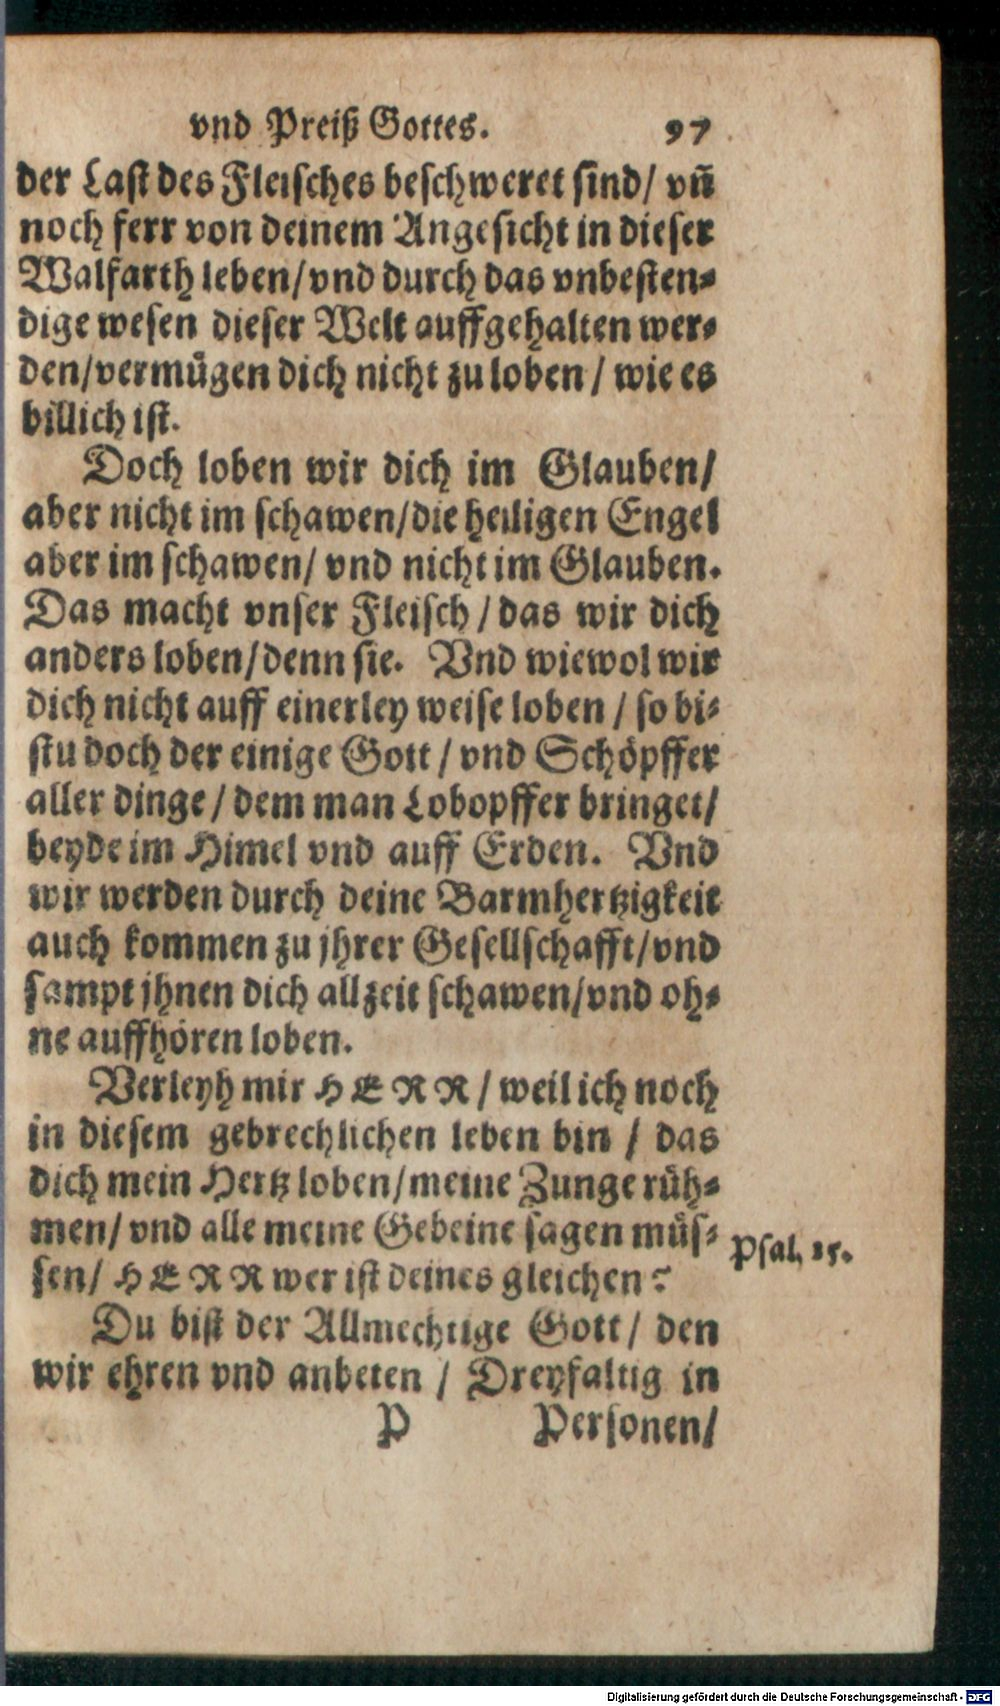 vnd Preiß Gottes. 97
der Last des Fleisches beschweret sind/ vn̄
noch ferr von deinem Angesicht in dieser
Walfarth leben/vnd durch das vnbesten-
dige wesen dieser Welt auffgehalten wer-
den/vermügen dich nicht zu loben / wie es
billich ist.
Doch loben wir dich im Glauben/
aber nicht im schawen/die heiligen Engel
aber im schawen/ vnd nicht im Glauben.
Das macht vnser Fleisch / das wir dich
anders loben/denn sie. Vnd wiewol wir
dich nicht auff einerley weise loben / so bi-
stu doch der einige Gott / vnd Schöpffer
aller dinge / dem man Lobopffer bringet/
beyde im Himel vnd auff Erden. Vnd
wir werden durch deine Barmhertzigkeit
auch kommen zu jhrer Gesellschafft/vnd
sampt jhnen dich allzeit schawen/vnd oh-
ne auffhören loben.
Verleyh mir HERR / weil ich noch
in diesem gebrechlichen leben bin / das
dich mein Hertz loben/meine Zunge rüh-
men/ vnd alle meine Gebeine sagen müs-
sen/ HERR wer ist deines gleichen?
Psal. 15.
Du bist der Allmechtige Gott/ den
wir ehren vnd anbeten / Dreyfaltig in
P Personen/
Digitalisierung gefördert durch die Deutsche Forschungsgemeinschaft - DFG